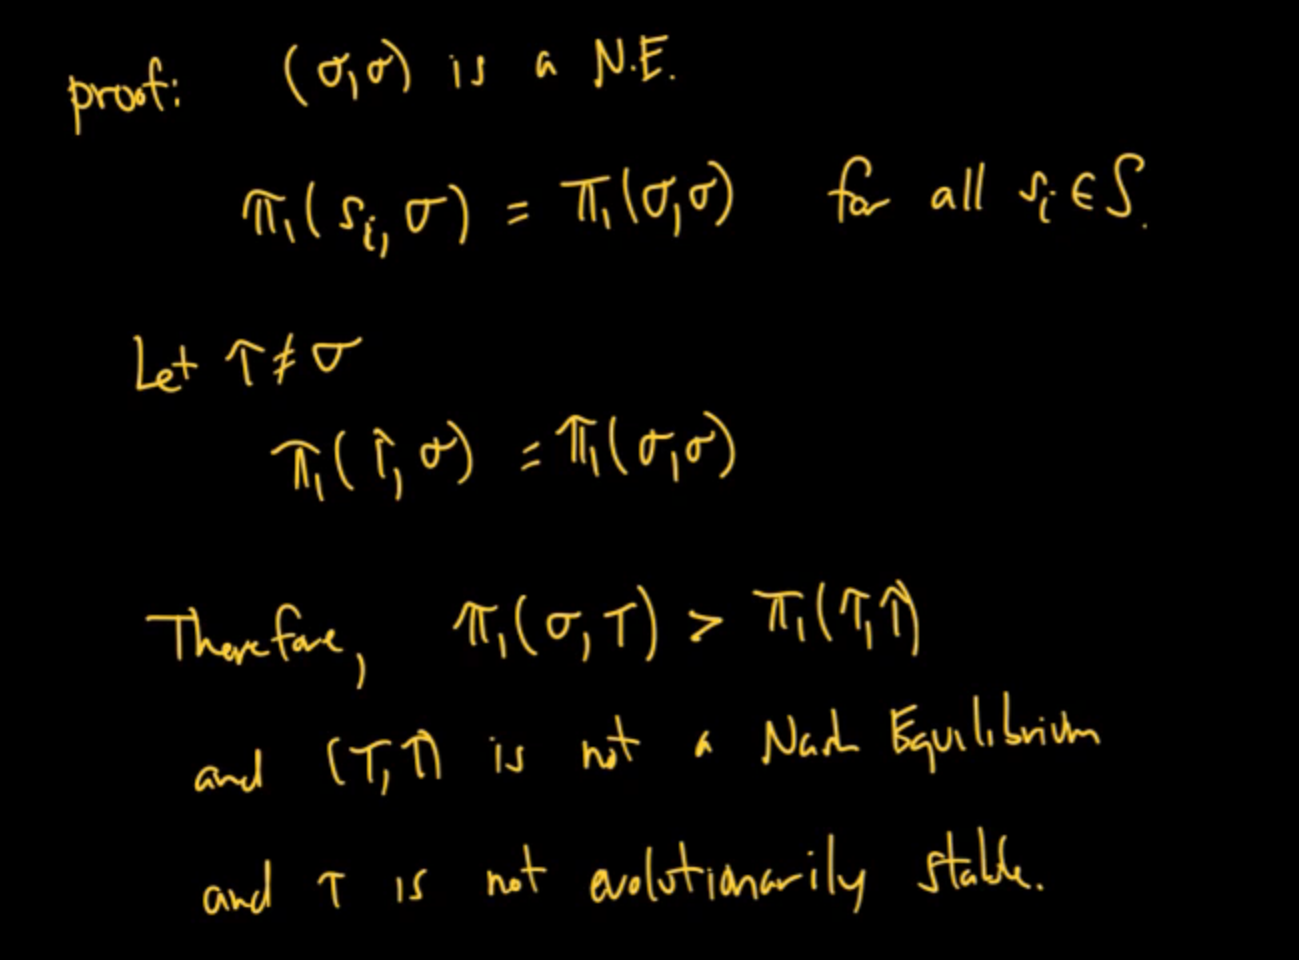 proof: (σ,σ) is a N.E.
π₁(sᵢ,σ) = π₁(σ,σ) for all sᵢ∈S.
Let τ≠σ
π₁(τ,σ) = π₁(σ,σ)
Therefore, π₁(σ,τ) > π₁(τ,τ)
and (τ,τ) is not a Nash Equilibrium
and τ is not evolutionarily stable.